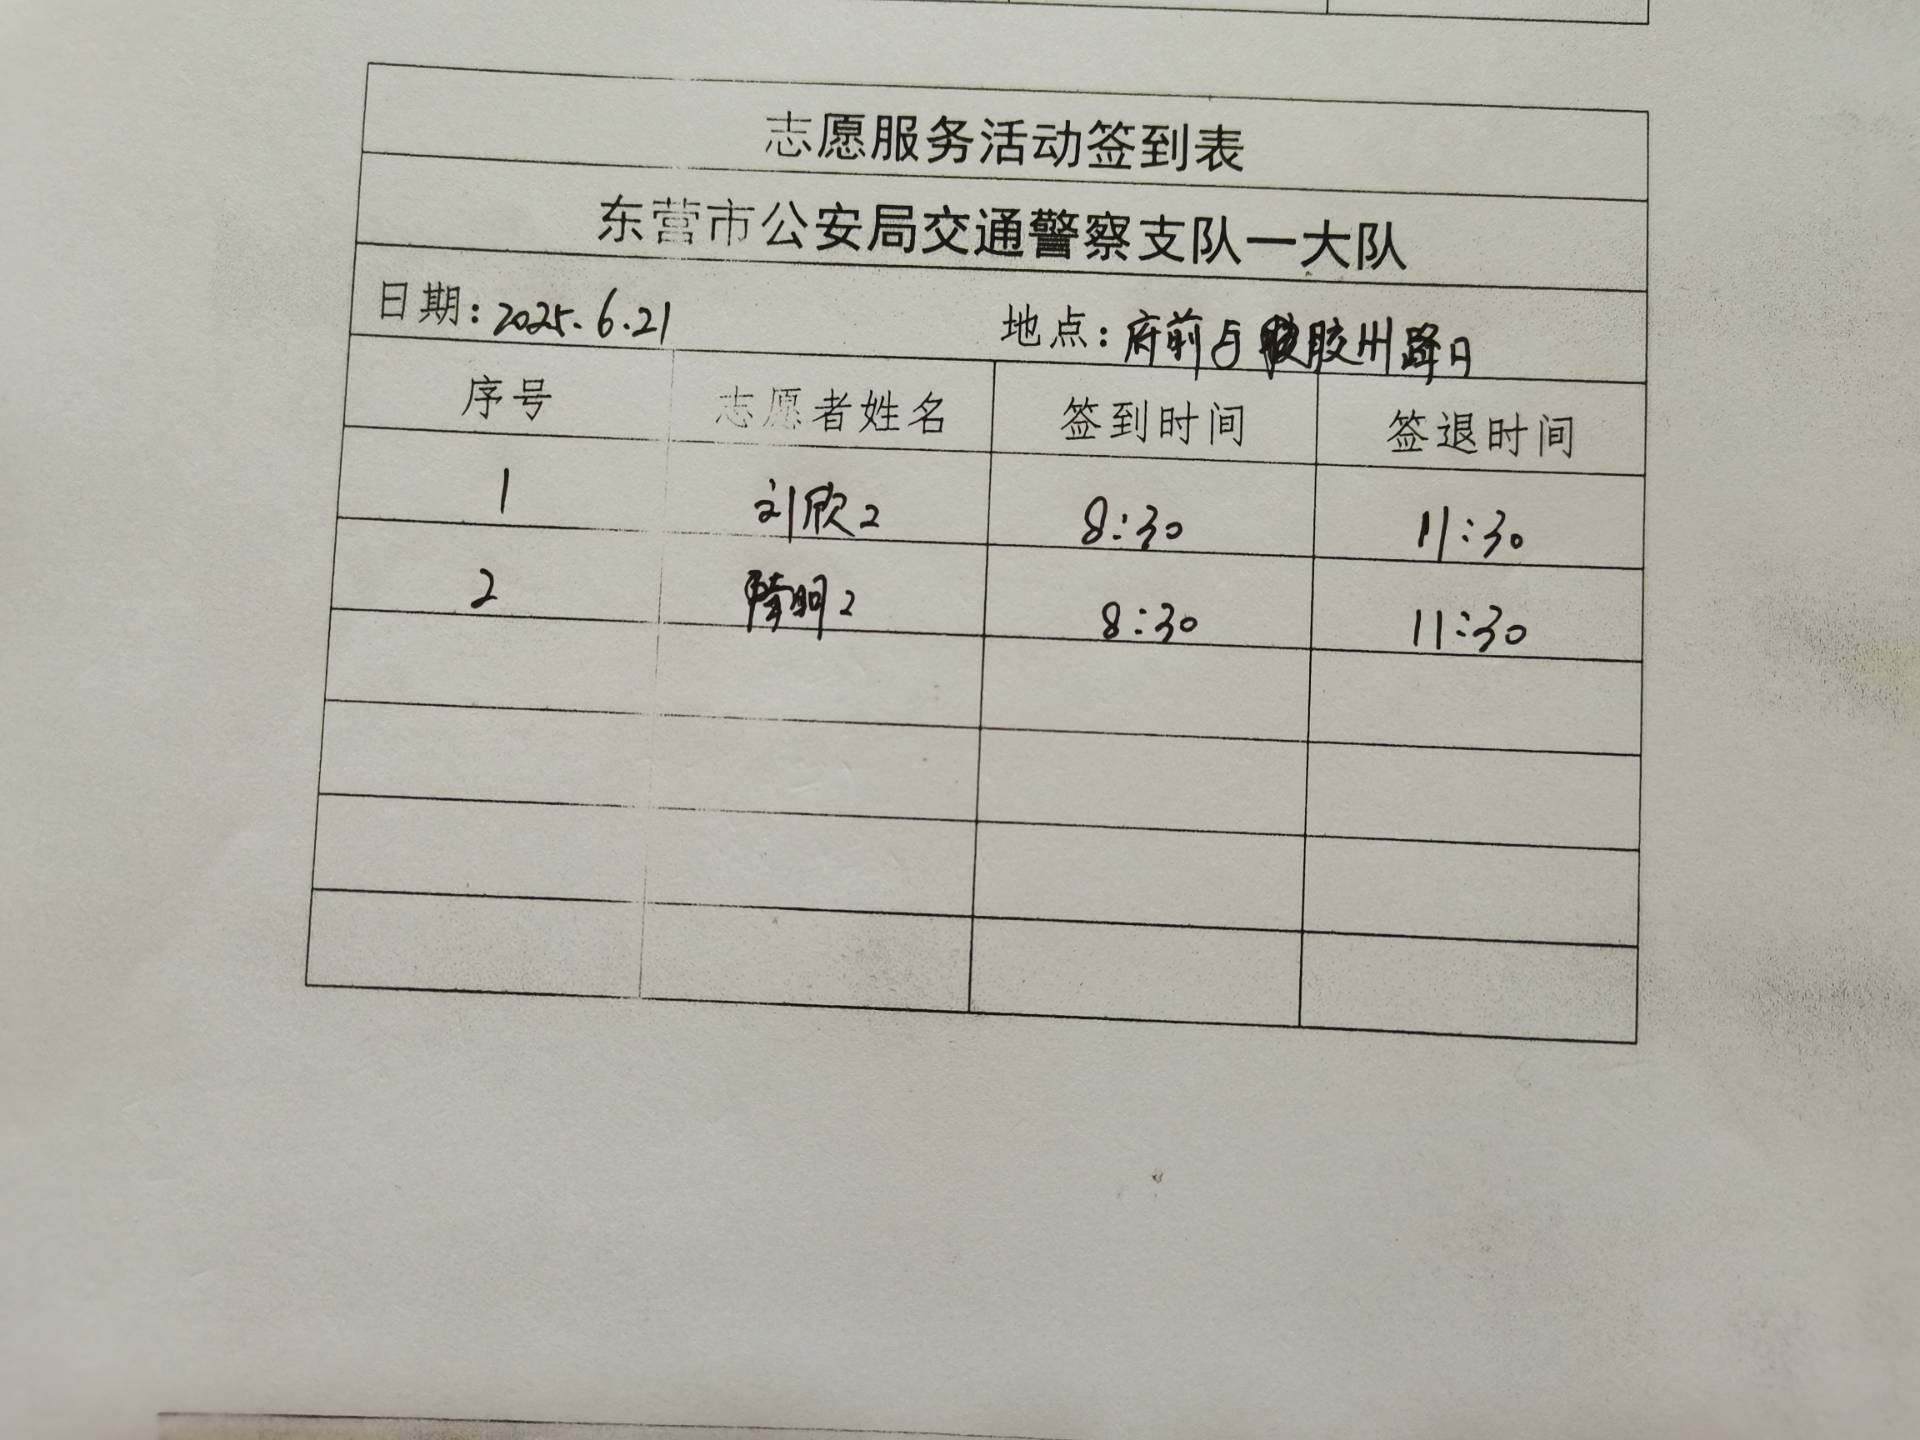 志愿服务活动签到表
东营市公安局交通警察支队一大队
日期：2025.6.21 地点：府前与胶州路口
序号 志愿者姓名 签到时间 签退时间
1 刘欣2 8:30 11:30
2 2 8:30 11:30